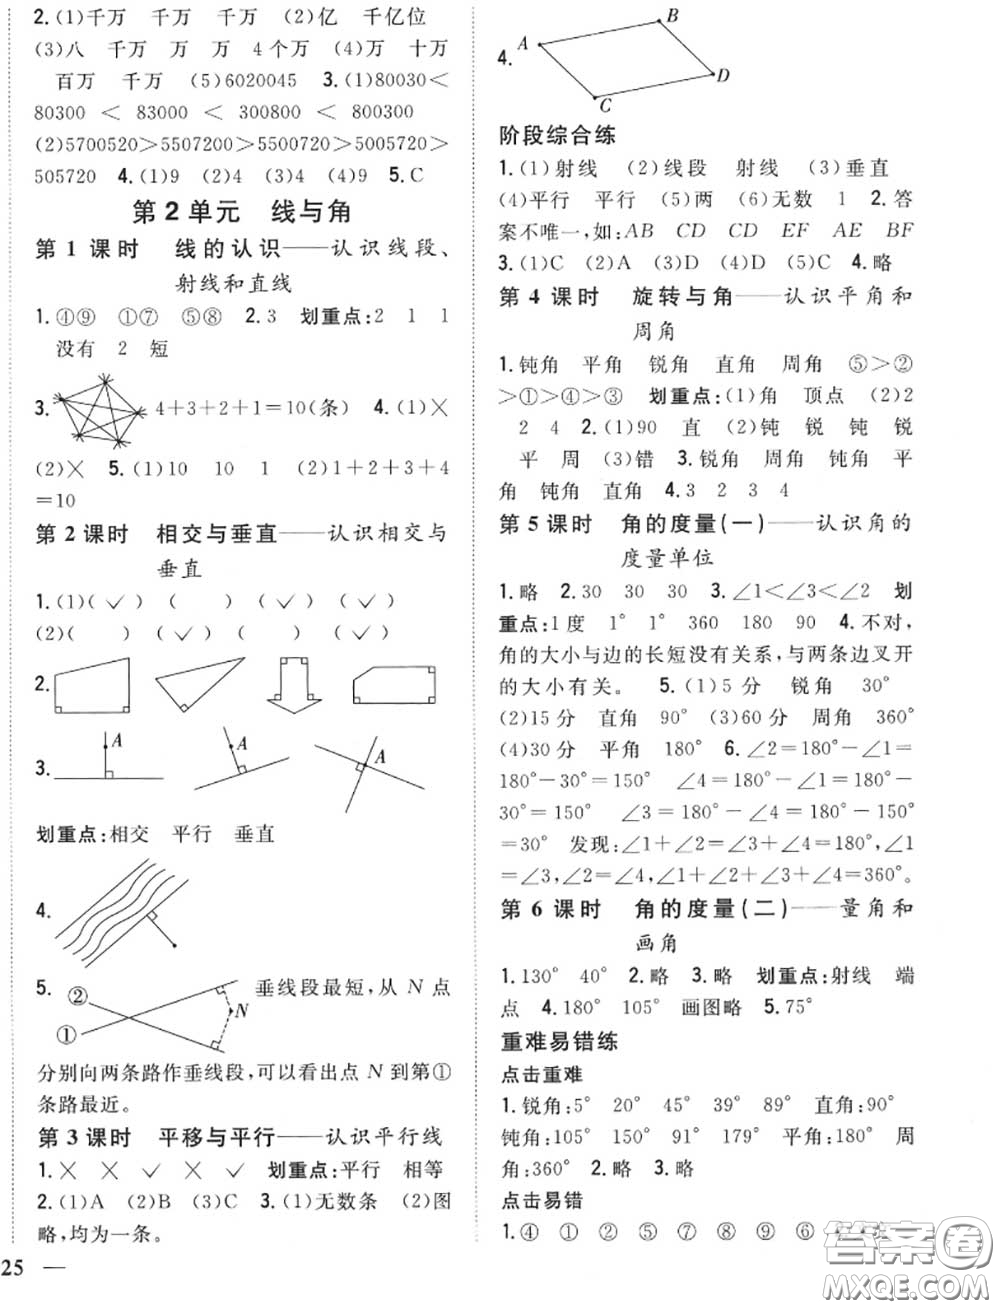 2.(1)千万 千万 千万 (2)亿 千亿位
(3)八 千万 万 万 4个万 (4)万 十万
百万 千万 (5)6020045 3.(1)80030<
80300 < 83000 < 300800 < 800300
(2)5700520>5507200>5500720>5005720>
505720 4.(1)9 (2)4 (3)4 (4)9 5.C
第2单元 线与角
第1课时 线的认识——认识线段、
射线和直线
1.④⑨ ①⑦ ⑤⑧ 2.3 划重点:2 1 1
没有 2 短
3. 4+3+2+1=10(条) 4.(1)×
(2)× 5.(1)10 10 1 (2)1+2+3+4
=10
第2课时 相交与垂直——认识相交与
垂直
1.(1)(✓) ( ) (✓) (✓)
(2)( ) (✓) ( ) (✓)
2.
3. A A A
划重点:相交 平行 垂直
4.
5. ② ① N 垂线段最短,从N点
分别向两条路作垂线段,可以看出点N到第①
条路最近。
第3课时 平移与平行——认识平行线
1.× × ✓ × ✓ 划重点:平行 相等
2.(1)A (2)B (3)C 3.(1)无数条 (2)图
略,均为一条。
25
4. A B C D
阶段综合练
1.(1)射线 (2)线段 射线 (3)垂直
(4)平行 平行 (5)两 (6)无数 1 2.答
案不唯一,如:AB CD CD EF AE BF
3.(1)C (2)A (3)D (4)D (5)C 4.略
第4课时 旋转与角——认识平角和
周角
1.钝角 平角 锐角 直角 周角 ⑤>②
>①>④>③ 划重点:(1)角 顶点 (2)2
2 4 2.(1)90 直 (2)钝 锐 钝 锐
平 周 (3)错 3.锐角 周角 钝角 平
角 钝角 直角 4.3 2 3 4
第5课时 角的度量(一)——认识角的
度量单位
1.略 2.30 30 30 3.∠1<∠3<∠2 划
重点:1度 1° 1° 360 180 90 4.不对,
角的大小与边的长短没有关系,与两条边叉开
的大小有关。 5.(1)5分 锐角 30°
(2)15分 直角 90° (3)60分 周角 360°
(4)30分 平角 180° 6.∠2=180°-∠1=
180°-30°=150° ∠4=180°-∠2=180°-
150°=30° ∠3=180°-∠4=180°-
30°=150° 发现:∠1+∠2=∠3+∠4,∠1
=∠3,∠2=∠4,∠1+∠2+∠3+∠4=360°。
第6课时 角的度量(二)——量角和
画角
1.130° 40° 2.略 3.略 划重点:射线 端
点 4.180° 105° 画图略 5.75°
重难易错练
点击重难
1.锐角:5° 20° 45° 39° 89° 直角:90°
钝角:105° 150° 91° 179° 平角:180° 周
角:360° 2.略 3.略
点击易错
1.④ ① ② ⑤ ⑦ ⑧ ⑨ ⑥
答案圈
MXQE.COM